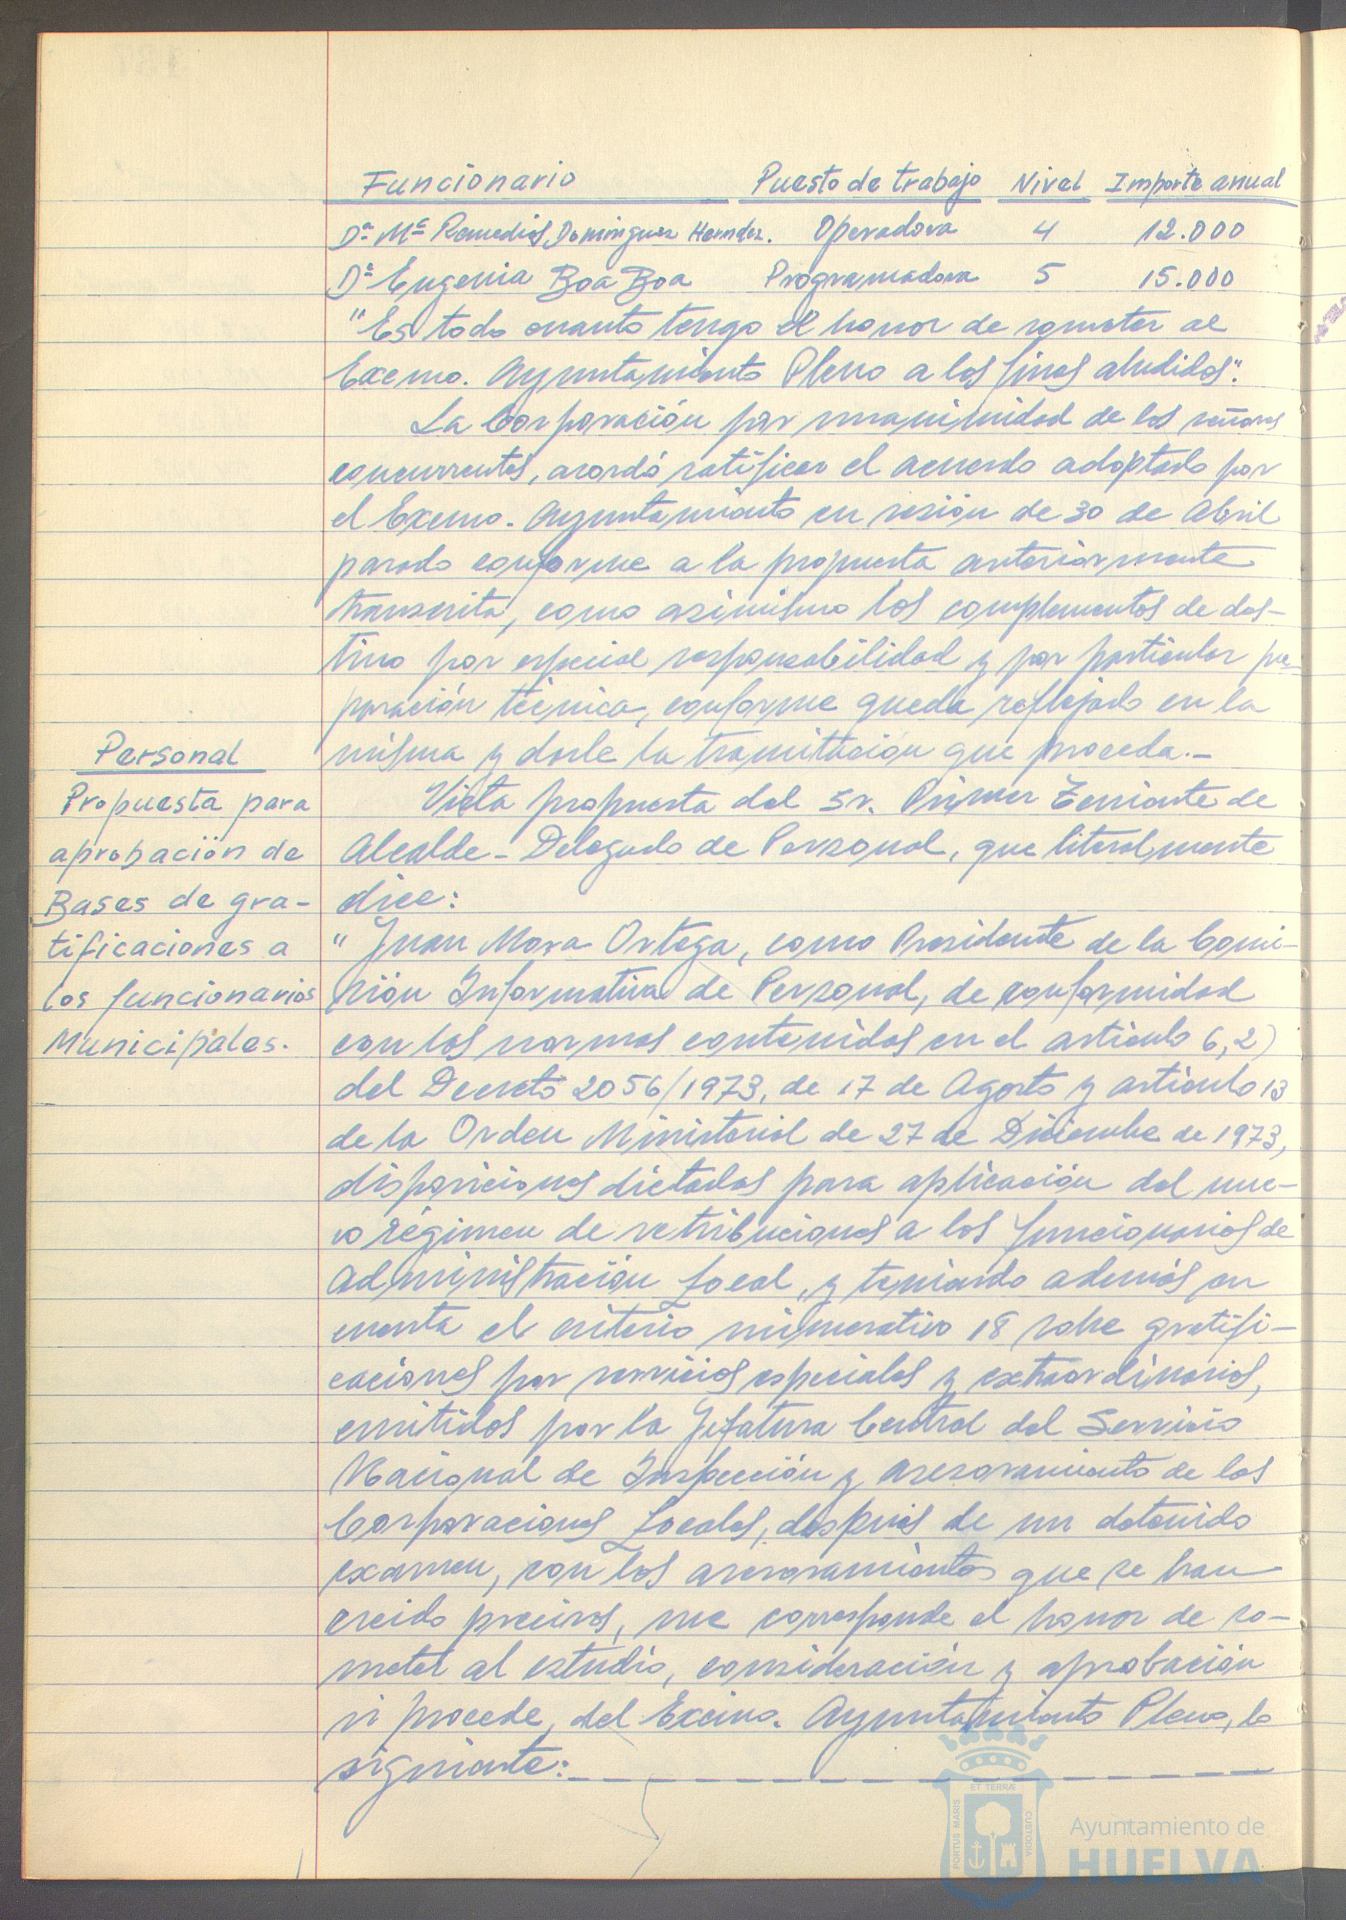 Funcionario Puesto de trabajo Nivel Importe anual
Dª Mª Remedios Dominguez Herndez. Operadora 4 12.000
Dª Eugenia Boa Boa Programadora 5 15.000
"Es todo cuanto tengo el honor de someter al
Excmo. Ayuntamiento Pleno a los fines aludidos".
La Corporación por unanimidad de los señores
concurrentes, acordó ratificar el acuerdo adoptado por
el Excmo. Ayuntamiento en sesión de 30 de Abril
pasado conforme a la propuesta anteriormente
transcrita, como asimismo los complementos de des-
tino por especial responsabilidad y por particular pre-
paración técnica, conforme queda reflejado en la
misma y darle la tramitación que proceda.-
Personal
Propuesta para
aprobación de
Bases de gra-
tificaciones a
los funcionarios
Municipales.
Vista propuesta del Sr. Primer Teniente de
Alcalde-Delegado de Personal, que literalmente
dice:
"Juan Mora Ortega, como Presidente de la Comi-
sión Informativa de Personal, de conformidad
con las normas contenidas en el artículo 6,2)
del Decreto 2056/1973, de 17 de Agosto y artículo 13
de la Orden Ministerial de 27 de Diciembre de 1973,
disposiciones dictadas para aplicación del nue-
vo régimen de retribuciones a los funcionarios de
Administración Local, y teniendo además en
cuenta el criterio numerativo 18 sobre gratifi-
caciones por servicios especiales y extraordinarios,
emitidos por la Jefatura Central del Servicio
Nacional de Inspección y asesoramiento de las
Corporaciones Locales, después de un detenido
examen, con los asesoramientos que se han
creido precisos, me corresponde el honor de so-
meter al estudio, consideración y aprobación
si procede, del Excmo. Ayuntamiento Pleno, lo
siguiente:
PORTUS MARIS ET TERRÆ CUSTODIA
Ayuntamiento de
HUELVA